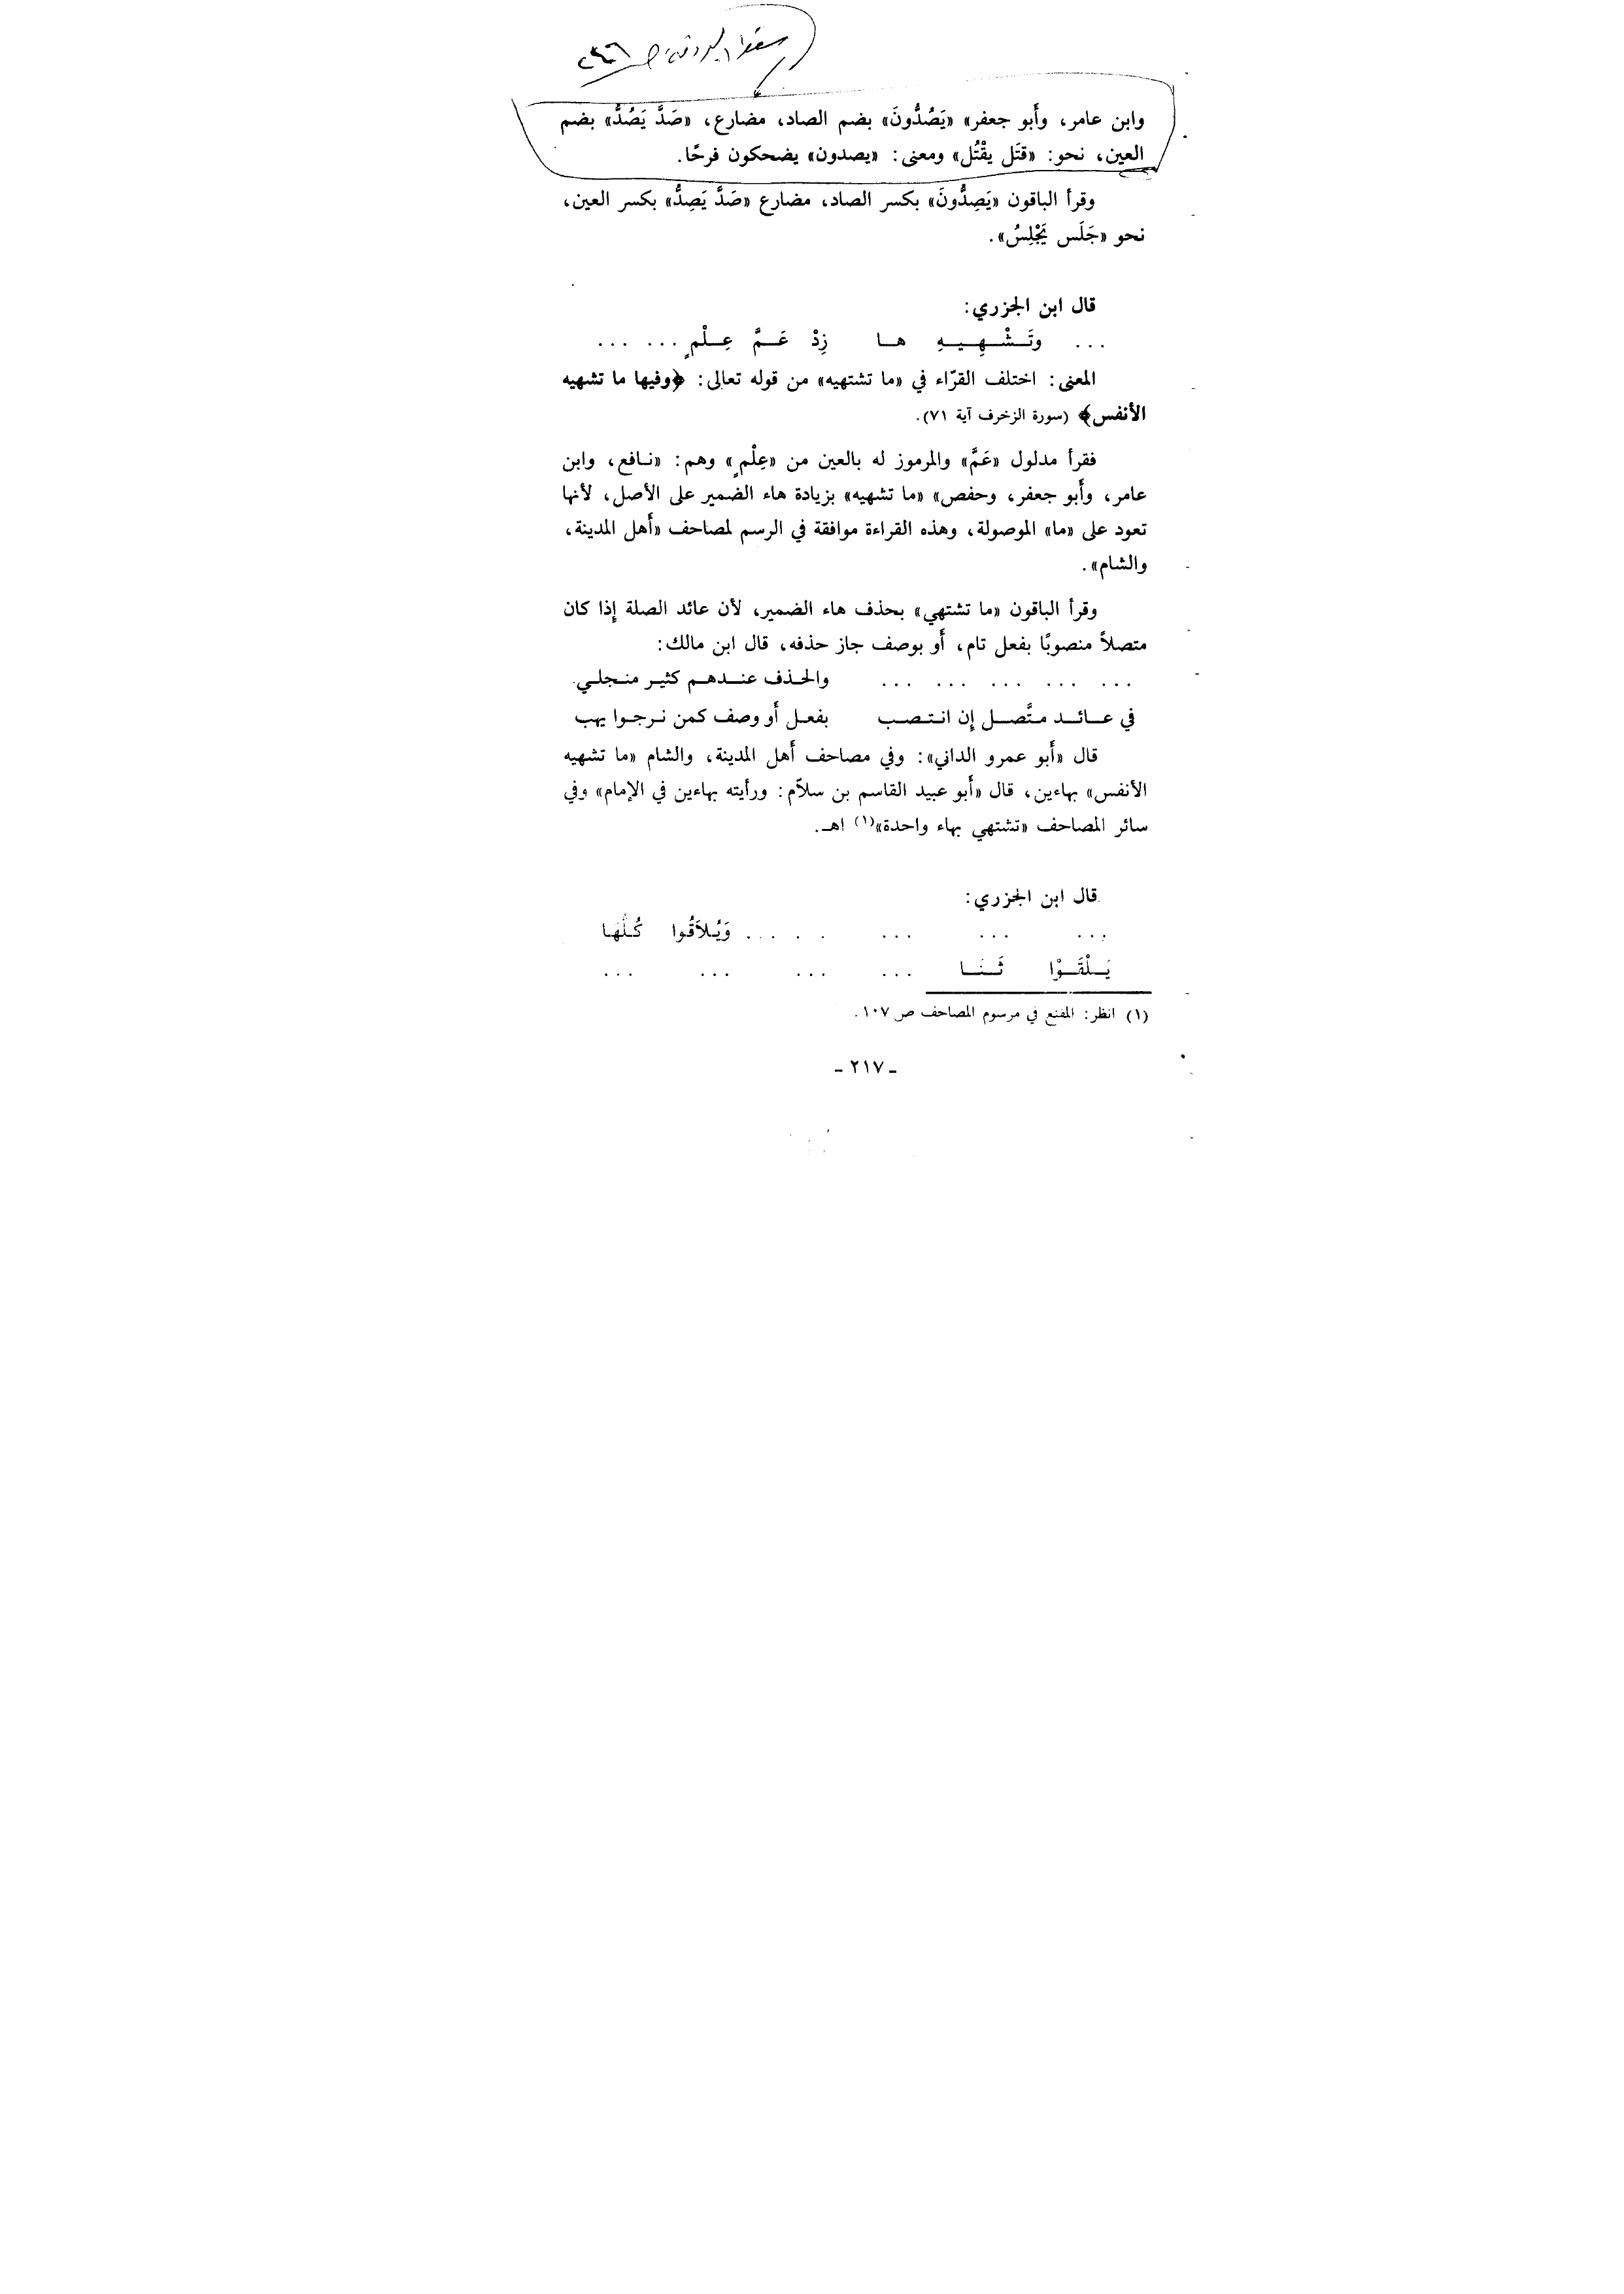 وابن عامر، وأَبو جعفر» «يَصُدُّونَ» بضم الصاد، مضارع، «صَدَّ يَصُدُّ» بضم
العين، نحو: «قتَل يقْتُل» ومعنى: «يصدون» يضحكون فرحًا.
وقرأ الباقون «يَصِدُّونَ» بكسر الصاد، مضارع «صَدَّ يَصِدُّ» بكسر العين،
نحو «جَلَس يَجْلِسُ».
قال ابن الجزري:
... وتَـشْـهِـيـهِ هـا زِدْ عَـمَّ عِـلْمٍ ... ...
المعنى: اختلف القرّاء في «ما تشتهيه» من قوله تعالى: ﴿وفيها ما تشهيه
الأنفس﴾ (سورة الزخرف آية ٧١).
فقرأ مدلول «عَمَّ» والمرموز له بالعين من «عِلْمٍ» وهم: «نـافع، وابن
عامر، وأَبو جعفر، وحفص» «ما تشهيه» بزيادة هاء الضمير على الأصل، لأنها
تعود على «ما» الموصولة، وهذه القراءة موافقة في الرسم لمصاحف «أَهل المدينة،
والشام».
وقرأ الباقون «ما تشتهي» بحذف هاء الضمير، لأن عائد الصلة إِذا كان
متصلاً منصوبًا بفعل تام، أَو بوصف جاز حذفه، قال ابن مالك:
... ... ... ... ... والحـذف عنـدهـم كثيـر منـجلـي
في عـائـد متَّصـل إِن انـتـصـب بفعـل أَو وصف كمن نـرجـوا يهب
قال «أَبو عمرو الداني»: وفي مصاحف أَهل المدينة، والشام «ما تشهيه
الأنفس» بهاءين، قال «أَبو عبيد القاسم بن سلاّم: ورأيته بهاءين في الإمام» وفي
سائر المصاحف «تشتهي بهاء واحدة»(١) اهـ.
قال ابن الجزري:
... ... ... . . . ... وَيُـلاَقُوا كُـلُّهَا
يَـلْقَـوْا ثَـنَـا ... ... ... ...
(١) انظر: المقنع في مرسوم المصاحف ص ١٠٧.
ـ ٢١٧ ـ